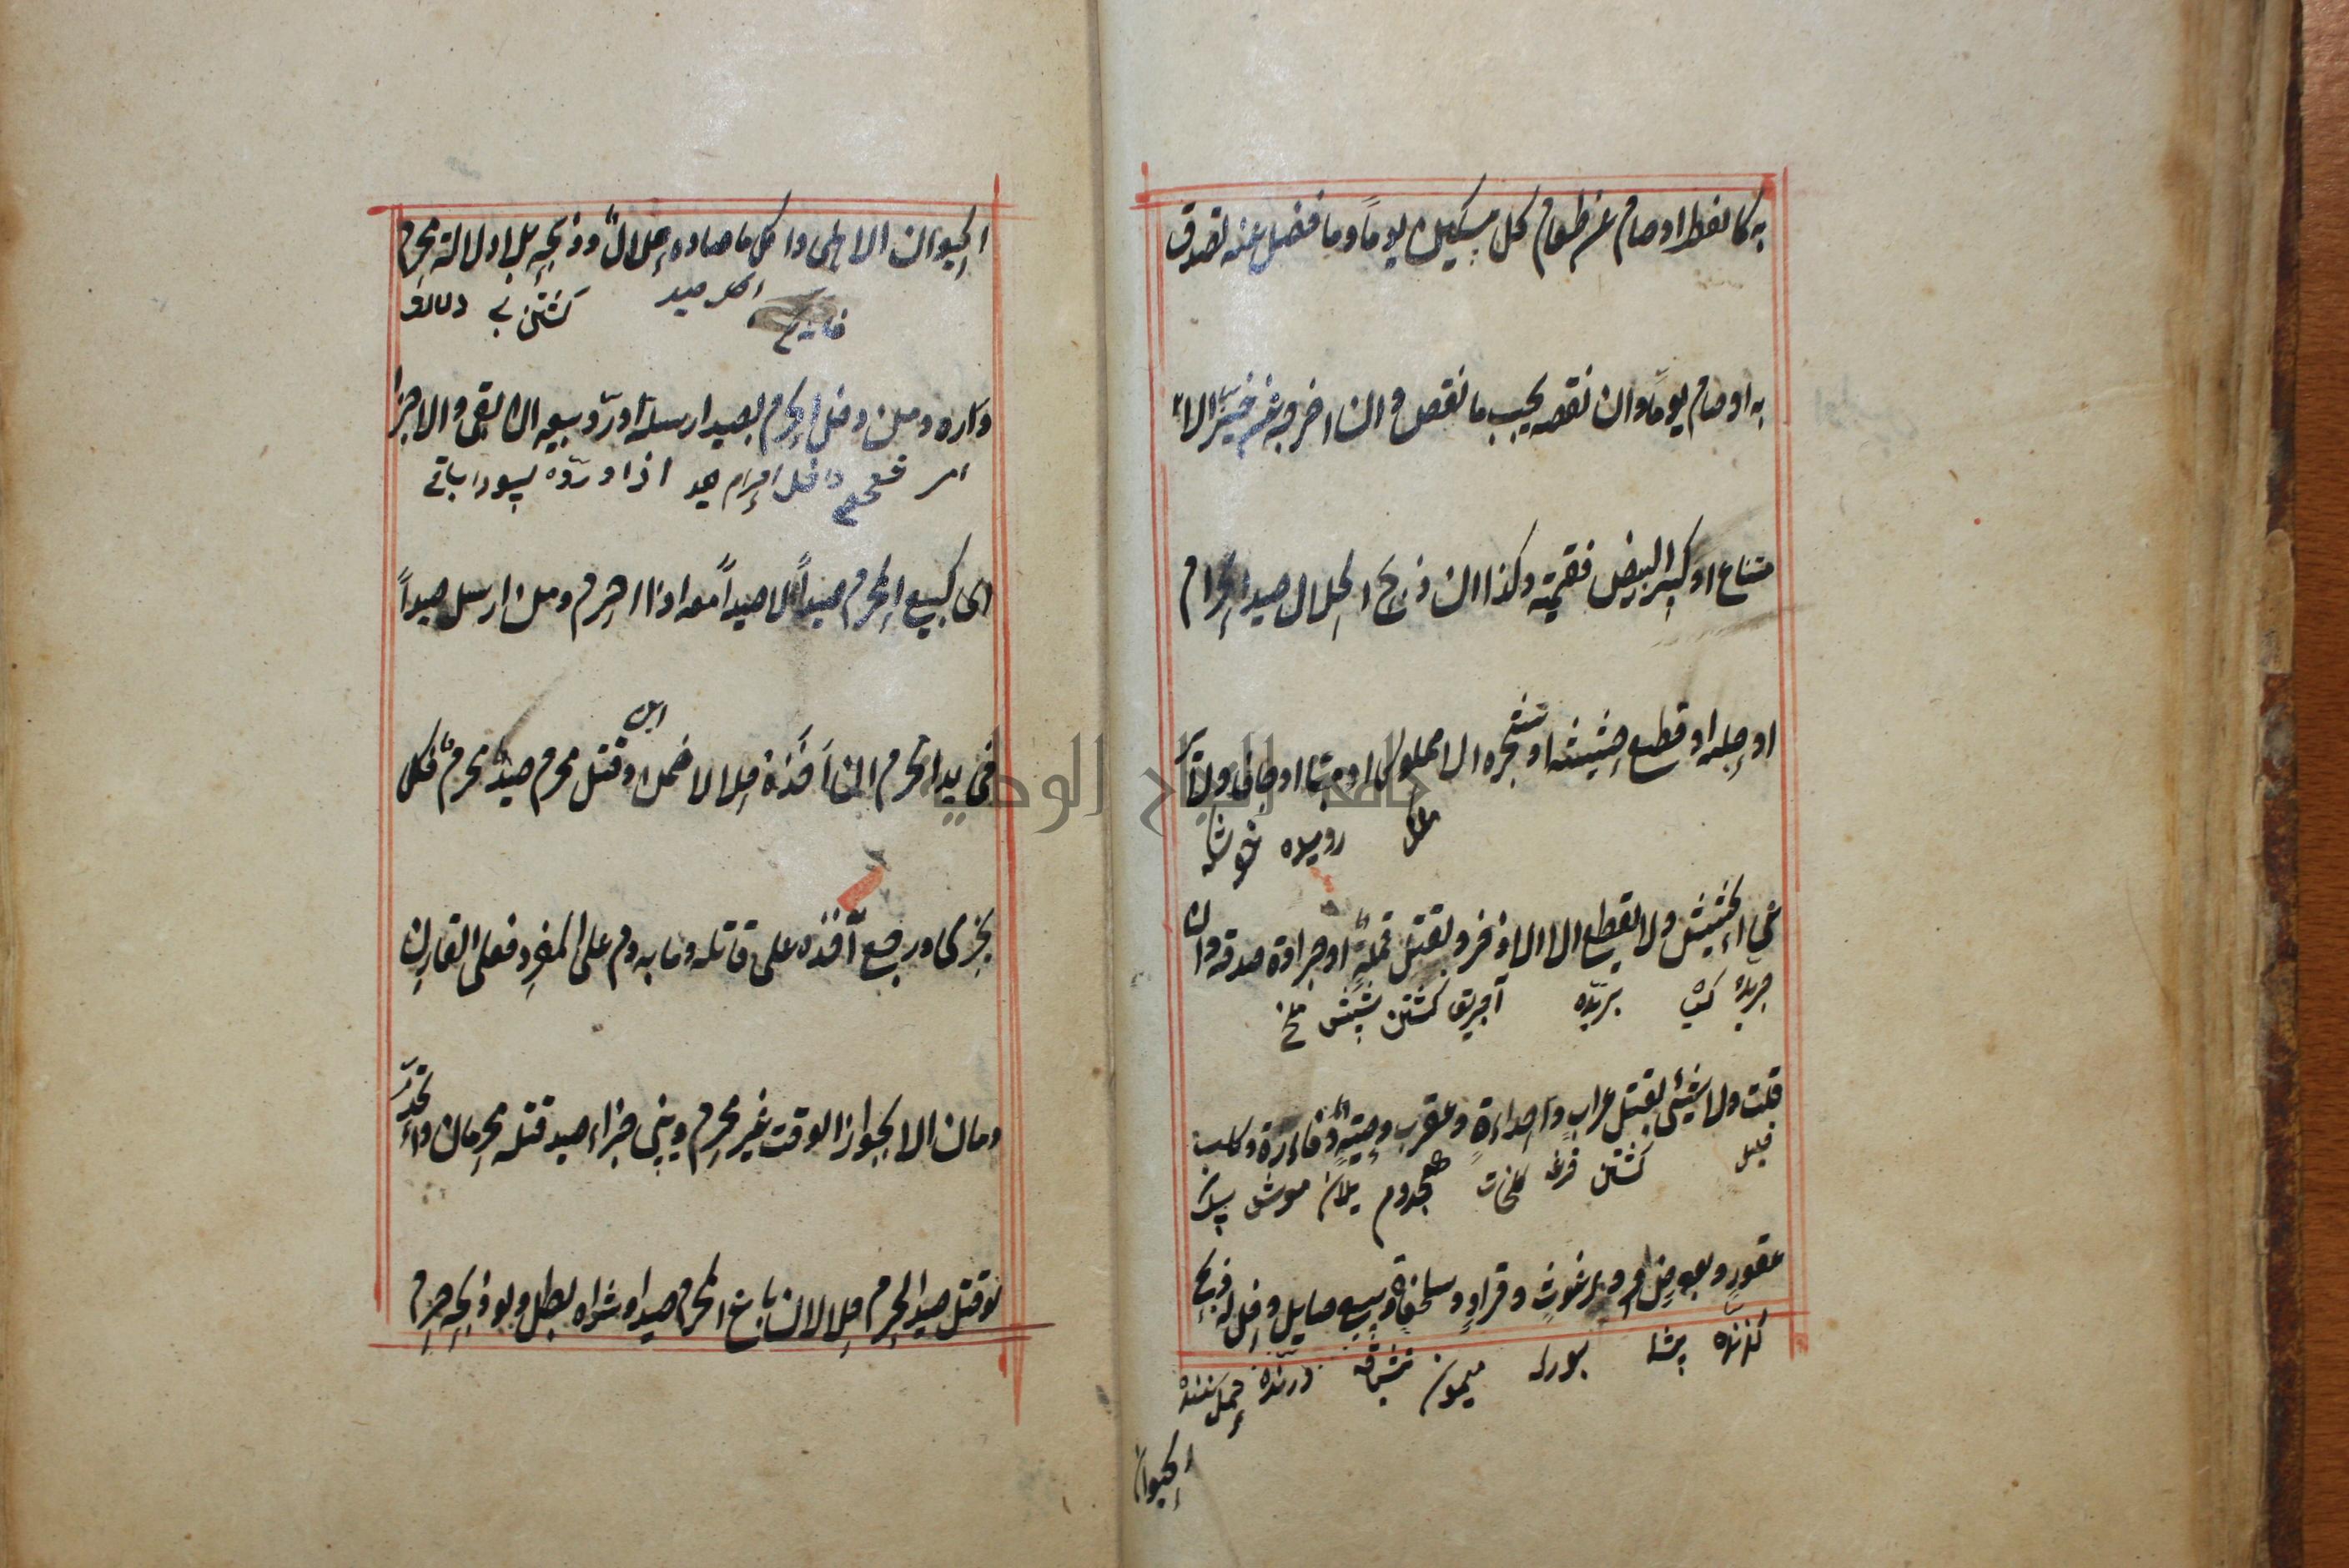 به كالفطر او صام عن طعام كل مسكين يوماً وما فضل عنه تصدق
به او صام يوماً وان نقصه يجب ما نقص وان اخرجه عن حيز الا
متناع او كسر البيض فقيمته وكذا ان ذبح الحلال صيد الحرام
او حلبه او قطع حشيشه او شجره الا مملوكا او منبتا او جافا ولا
روييده خوشه
عى الحشيش ولا يقطع الا الاذخر وبقتل قملة او جرادة صدقة وان
بريده كشتن شپش ملخ
قلت ولا شيئ بقتل غراب وحداءة وعقرب وحية وفاءرة وكلب
قليل كشتن موش
عقور وبعوض وبرغوث وقراد وسلحفاة وسبع صايل وله ذبح
كزنده پشه درنده حمل كننده
الحيوان
الحيوان الاهلى واكل ما صاده حلال وذبحه بلا دلالة محرم
صيد كشتن بى دلالت
وامره ومن دخل الحرم بصيد ارسله او رد بيعه ان بقى والا جزا
امر داخل باقى
اى كبيع المحرم صيداً لا صيداً معه اذا احرم ومن ارسل صيداً
فى يد محرم ان اخذه حلالا ضمن وقتل محرم صيد محرم فكل
يجزى ورجع آخذه على قاتله وما به دم على المفرد فعلى القارن
دمان الا بجواز الوقت غير محرم ويثنى جزاء صيد قتله محرمان واتحد
لو قتل صيد الحرم حلالان باع المحرم صيدا او شراه بطل ولو ذبحه حرم
جامعة النجاح الوطنية